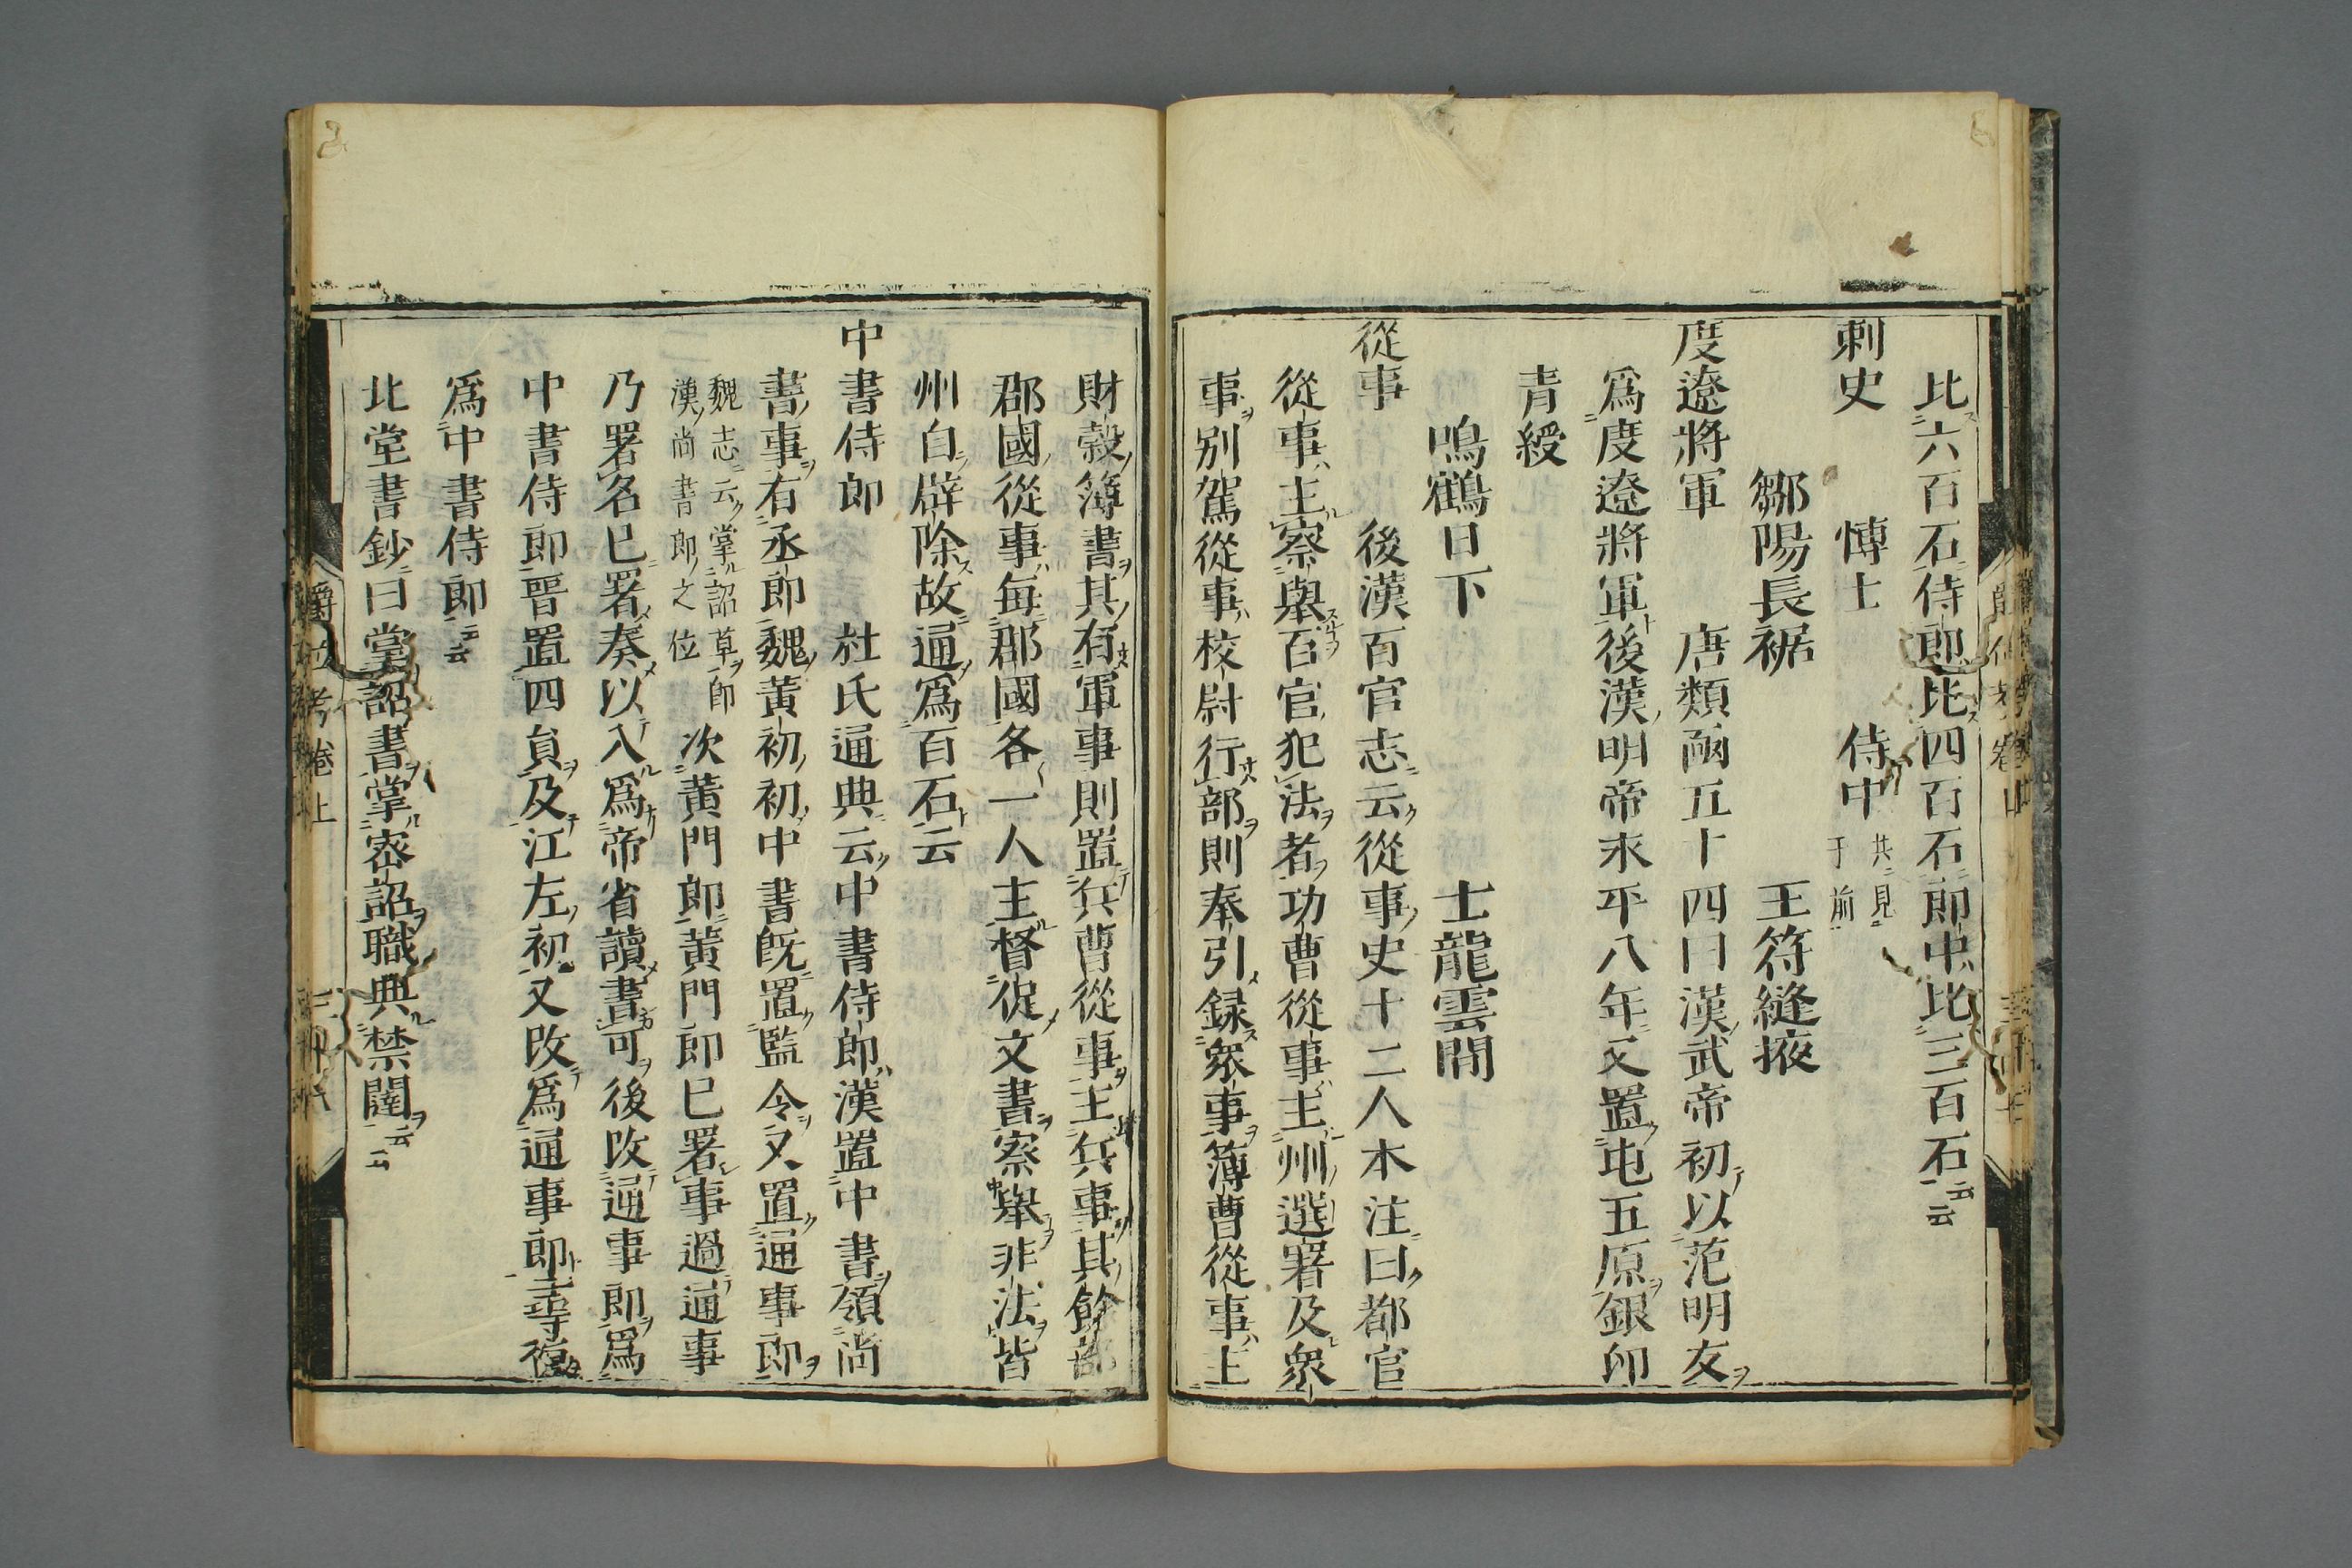 比六百石侍郎比四百石郎中比三百石云云
刺史　博士　侍中共見于前
鄒陽長裾　王符縫掖
度遼將軍　唐類函五十四曰漢武帝初以范明友
爲度遼將軍後漢明帝永平八年又置屯五原銀印
青綬
鳴鶴日下　士龍雲間
從事　後漢百官志云從事史十二人本注曰都官
從事主察舉百官犯法者功曹從事主州選署及衆
事別駕從事校尉行部則奉引録衆事簿曹從事主
財穀簿書其有軍事則置兵曹從事主兵事其餘部
郡國從事每郡國各一人主督促文書察舉非法皆
州自辟除故通爲百石云
中書侍郎　社氏通典云中書侍郎漢置中書領尚
書事有丞郎魏黃初初中書既置監令又置通事郎
魏志云掌詔草即漢尚書郎之位次黃門郎黃門郎已署事過通事
乃署名已署奏以入爲帝省讀書可後改通事郎爲
中書侍郎晉置四員及江左初又改爲通事郎尋復
爲中書侍郎云云
北堂書鈔曰掌詔書掌密詔職典禁闥云云
爵位考卷上